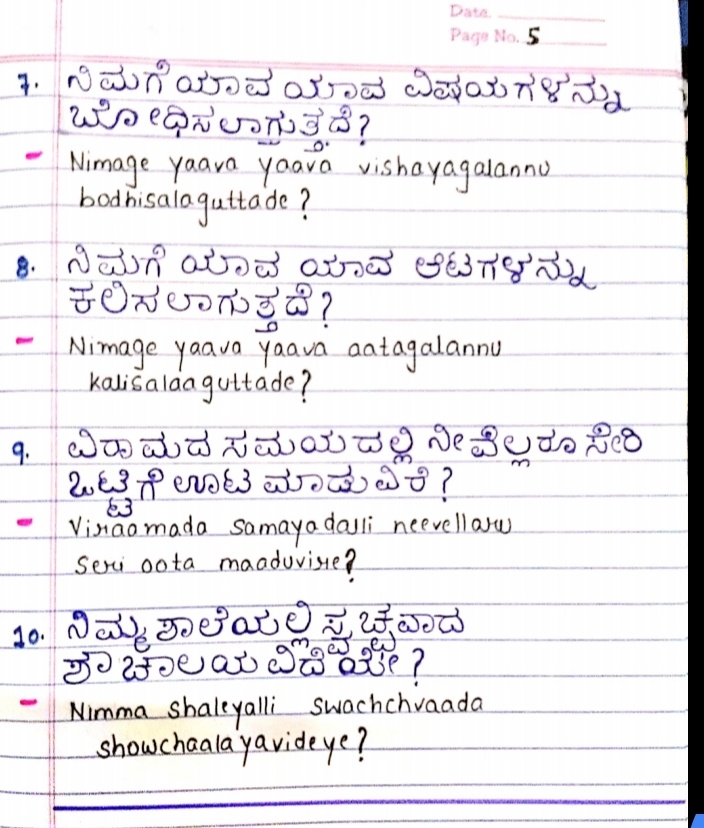 Date
Page No. 5
7. ನಿಮಗೆ ಯಾವ ಯಾವ ವಿಷಯಗಳನ್ನು
ಬೋಧಿಸಲಾಗುತ್ತದೆ?
- Nimage yaava yaava vishayagalannu
bodhisalaguttade?
8. ನಿಮಗೆ ಯಾವ ಯಾವ ಆಟಗಳನ್ನು
ಕಲಿಸಲಾಗುತ್ತದೆ?
- Nimage yaava yaava aatagalannu
kalisalaaguttade?
9. ವಿರಾಮದ ಸಮಯದಲ್ಲಿ ನೀವೆಲ್ಲರೂ ಸೇರಿ
ಒಟ್ಟಿಗೆ ಊಟ ಮಾಡುವಿರೆ?
- Viraamada samayadalli neevellaru
seri oota maaduvire?
10. ನಿಮ್ಮ ಶಾಲೆಯಲ್ಲಿ ಸ್ವಚ್ಛವಾದ
ಶೌಚಾಲಯವಿದೆಯೇ?
- Nimma shaleyalli swachchvaada
showchaalayavideye?